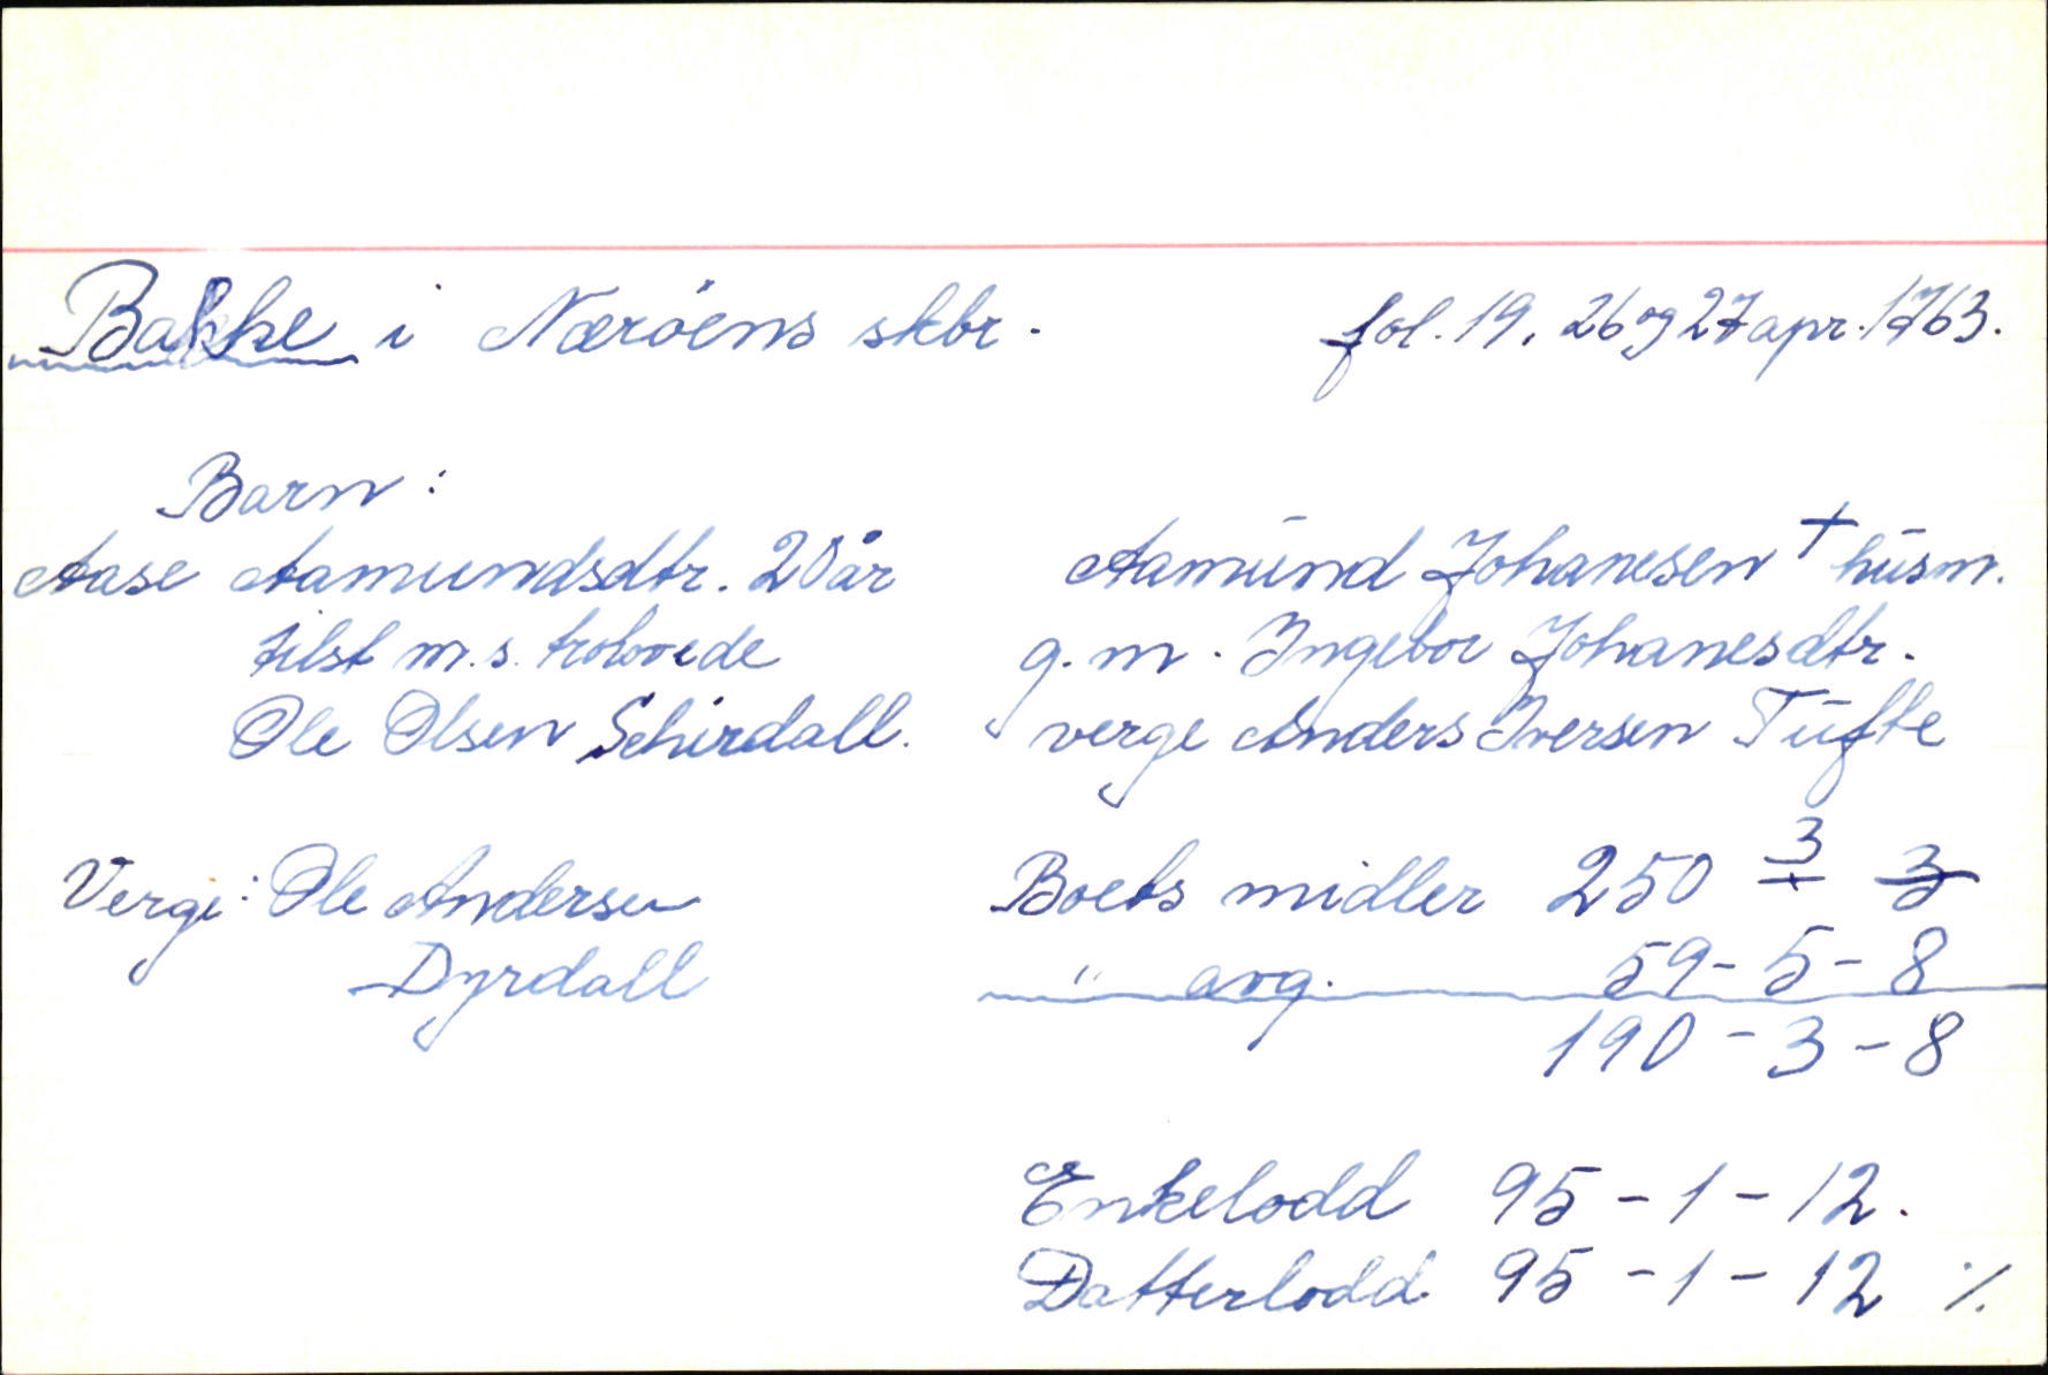 Bakke i Nærøens skbr. fol. 19. 26 og 27 apr. 1763.
Barn:
Aase Aamundsdtr. 20 år
tilst m.s. trolovede
Ole Olsen Schirdall.
Verge: Ole Andersen
Dyrdall
Aamund Johanesen + husm.
g.m. Ingebor Johanesdtr.
verge Anders Iversen Tufte
Boets midler 250 3 3
" avg. 59-5-8
190-3-8
Enkelodd 95-1-12.
Datterlodd 95-1-12 ./.